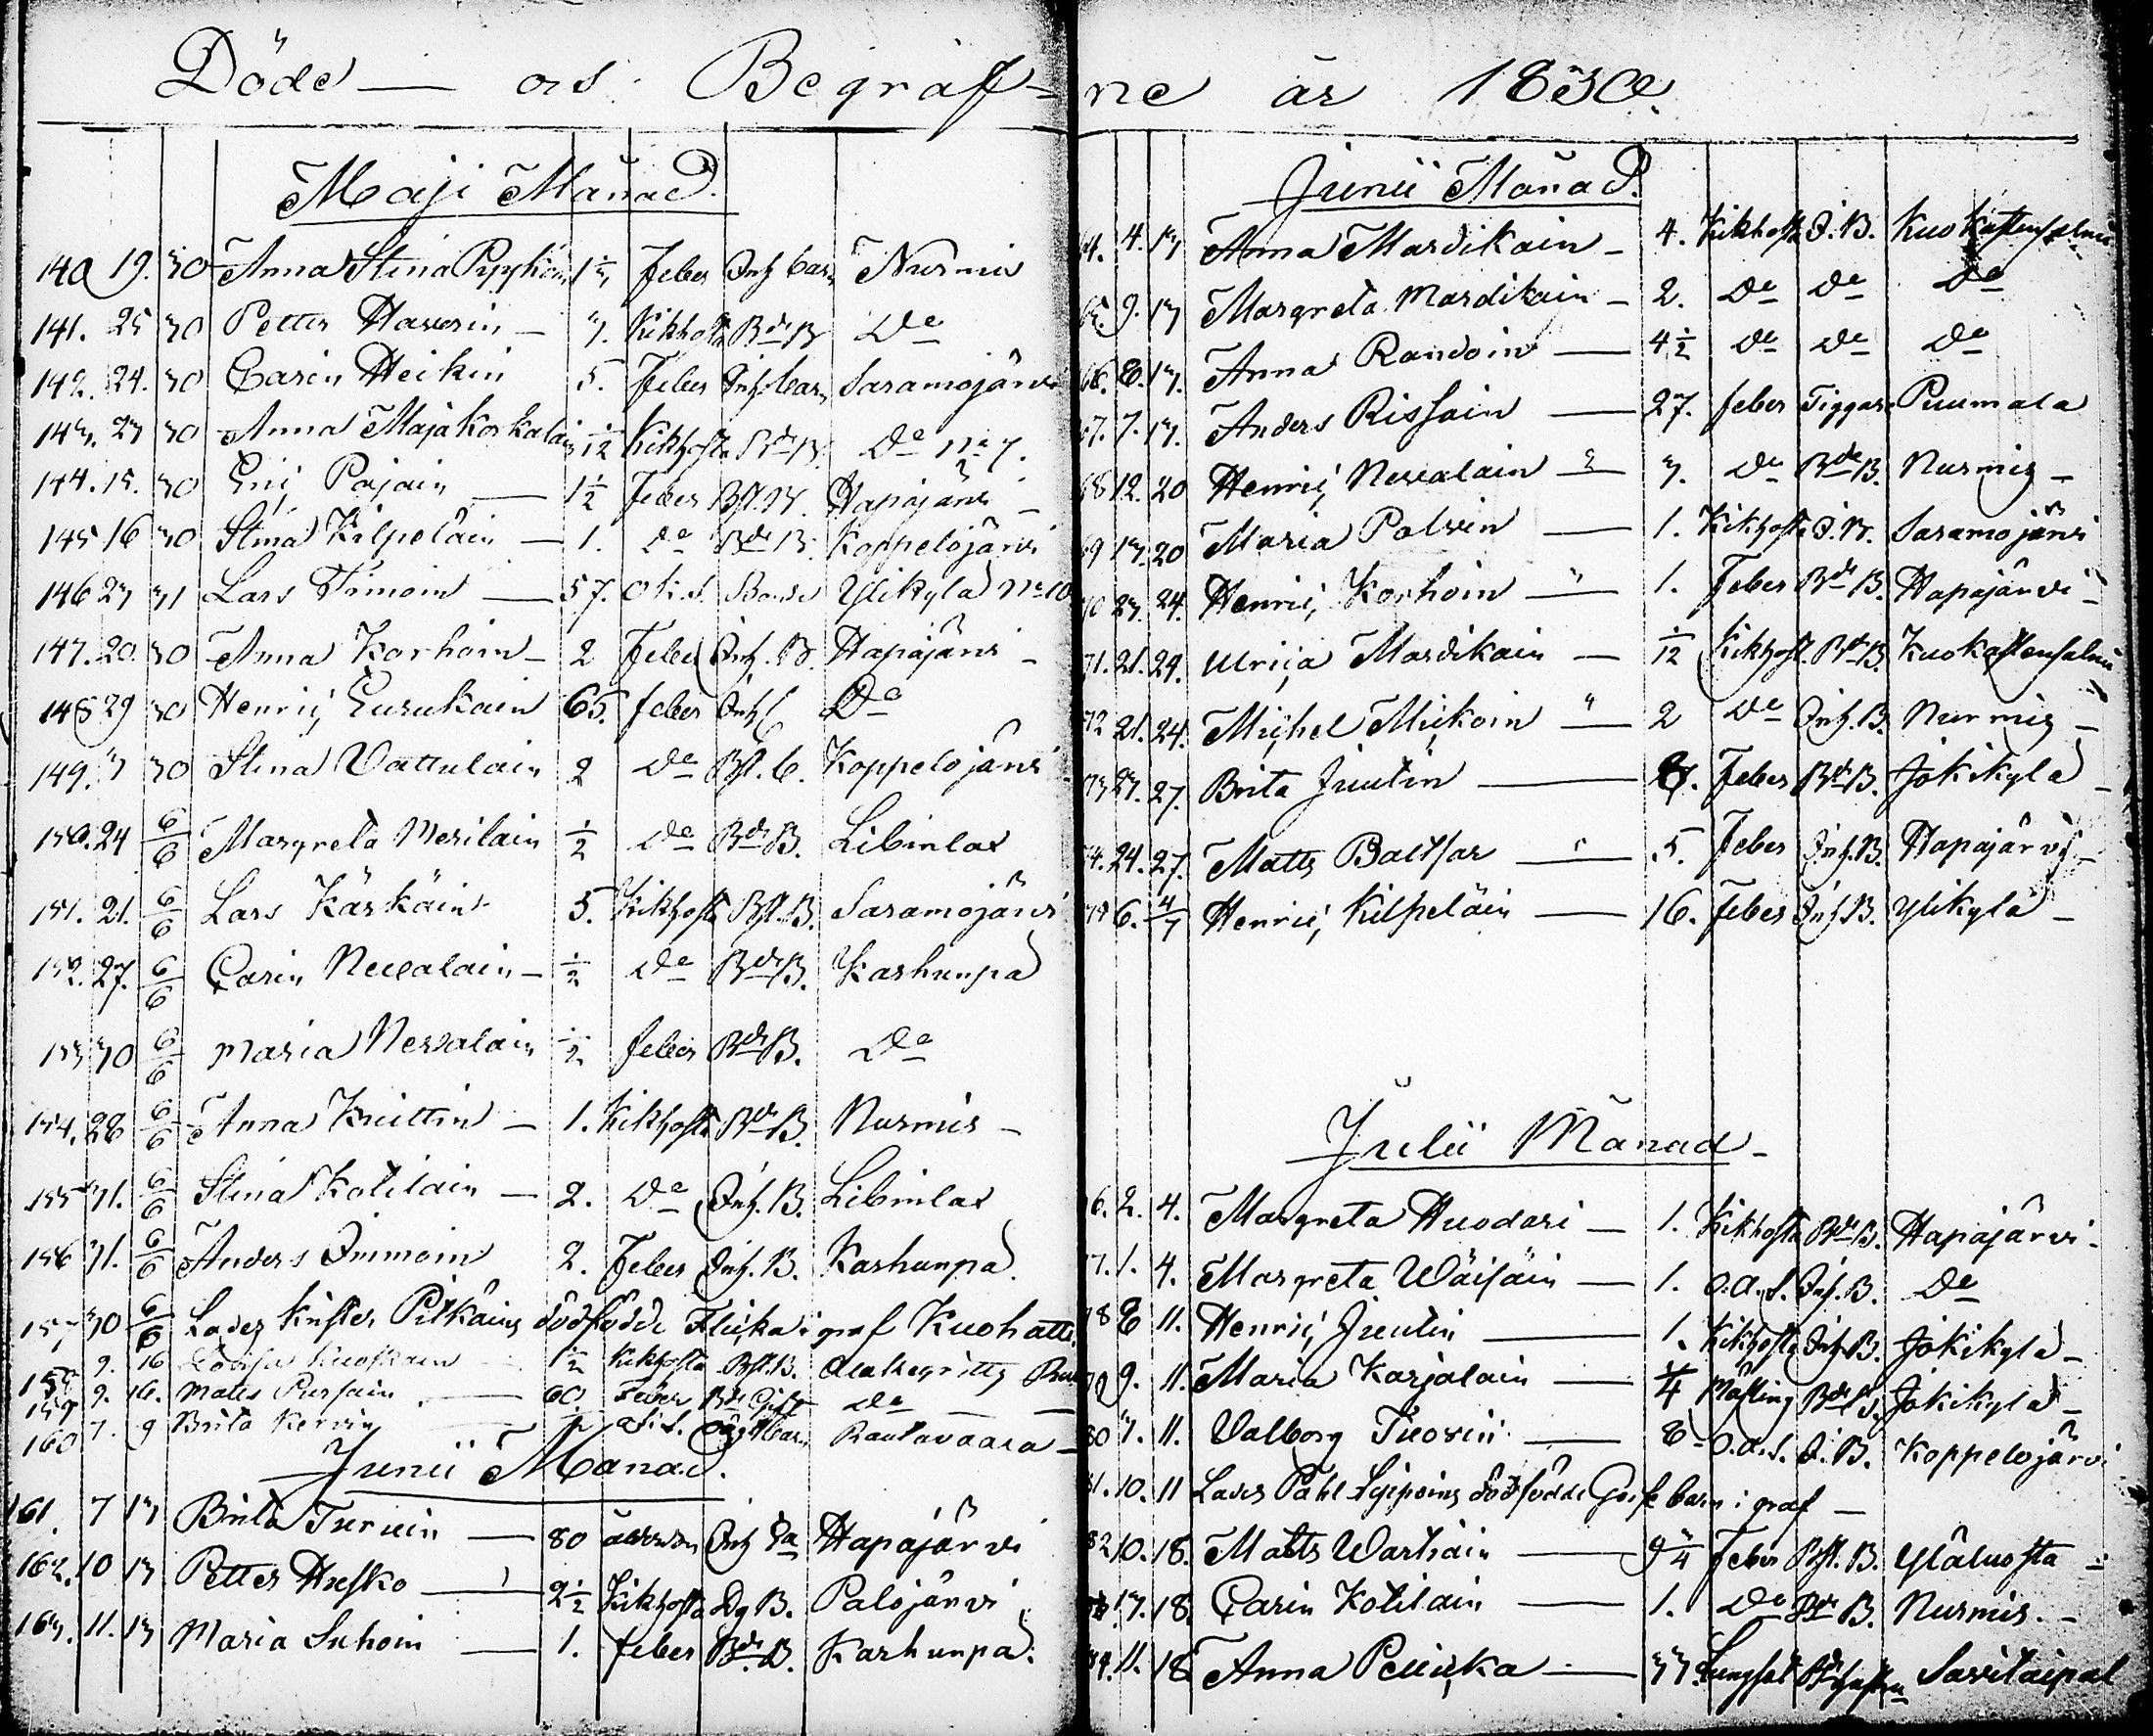 Döde — os Begräf-
Maji Månad.
140 19. 30 Anna Stina Pyykön 1½ feber Inh barn Nurmis
141. 25 30 Petter Haverin — 3. Kikhosta Bde B De
142. 24. 30 Carin Heikin 5. feber Inh. barn Saramojärvi
143. 23 30 Anna Maja Korkalain 5/12 Kikhosta Bde B. De No 7.
144. 15. 30 Eric Pajain — 1½ feber Bst. B. Hapajärvi
145 16 30 Stina Kilpeläin — 1. De Bde B. Koppelojärvi
146 23 31 Lars Timoin — 57. Ok. s. Bonde Ylikylä No 10
147. 20. 30 Anna Korhoin — 2 Feber Inh. B. Hapajärvi —
148 29 30 Henric Eurukain 65. feber Inh De
149. 3 30 Stina Vattulain 2 De Bst. B. Koppelojärvi
150. 24 6/6 Margreta Merilain ½ De Bde B. Libinlax
151. 21. 6/6 Lars Kärkäin 5. Kikhosta Bst. B. Saramojärvi
152. 27. 6/6 Carin Nevalain — ½ De Bde B. Karhunpä
153 30 6/6 Maria Nevalain ½ feber Bde B. De
154. 28 6/6 Anna Kuittin — 1. Kikhosta Bde B. Nurmis —
155 31. 6/6 Stina Kotilain — 2. De Inh. B. Libinlax
156 31. 6/6 Anders Immoin 2. feber Inh. B. Karhunpä
157 30 6/6 Lades Krister Pitkäins dödfödde Flicka i graf Kuohatti
158 9. 16 Lovisa Kuoskain 1½ Kikhosta Bst. B.
159 9. 16. Matts Pursain — 60. Feber Bde Gift De —
160 7. 9 Brita Kervin Rautavaara —
Junii Månad.
161. 7 13 Brita Turuin — 80 ålderdom Inh Hapajärvi
162. 10 13 Petter Husko — 2½ Kikhosta Dg B. Palojärvi
163. 11. 13 Maria Suhoin — 1. feber Bde B. Karhunpä.
ne år 1830.
Junii Månad.
64. 4. 13 Anna Mardikain — 4. Kikhosta I. B. Kuokastensalmi
65. 9. 13 Margreta Mardikain — 2. De De De
66. 8. 13. Anna Randoin — 4½ De De De
67. 7. 13. Anders Rissain — 27. feber Tiggare Puumala
68 12. 20 Henric Nevalain — 3. De Bde B. Nurmis —
69 13. 20 Maria Polvin — 1. Kikhosta I. B. Saramojärvi
70 23. 24. Henric Korhoin — 1. Feber Bde B. Hapajärvi —
71. 21. 24. Ulrica Mardikain — 1/12 Kikhost. Bde B. Kuokastensalmi
72 21. 24. Michel Mickoin — 2 De Inh. B. Nurmis —
73 23. 27. Brita Juutin — feber Bde B. Jokikylä —
74. 24. 27. Matts Baltsar — 5. feber Inh. B. Hapajärvi —
75 6. 4/7 Henric Kilpeläin — 16. feber Inh. B. Ylikylä —
Julii Månad —
76. 2. 4. Margreta Huodari — 1. Kikhosta Bde B. Hapajärvi —
77. 1. 4. Margreta Wäisäin — 1. O. a. s. Inh. B. De
78 8 11. Henric Juutin — 1. Kikhosta Inh. B. Jokikylä —
79 9. 11. Maria Karjalain — ¼ Mässling Bde B. Jokikylä —
80 3. 11. Valborg Tuovin — 8 — O. a. s. I. B. Koppelojärvi
81. 10. 11 Lades Påhl Sipposins dödfödde Gosse barn i graf —
82 10. 18. Matts Wartiain — ¾ feber Bst. B. Yläluosta —
83 13. 18. Carin Kotilain — 1. De Bde B. Nurmis —
84. 11. 18 Anna Peuicka — 33. Lungsot Savitaipal